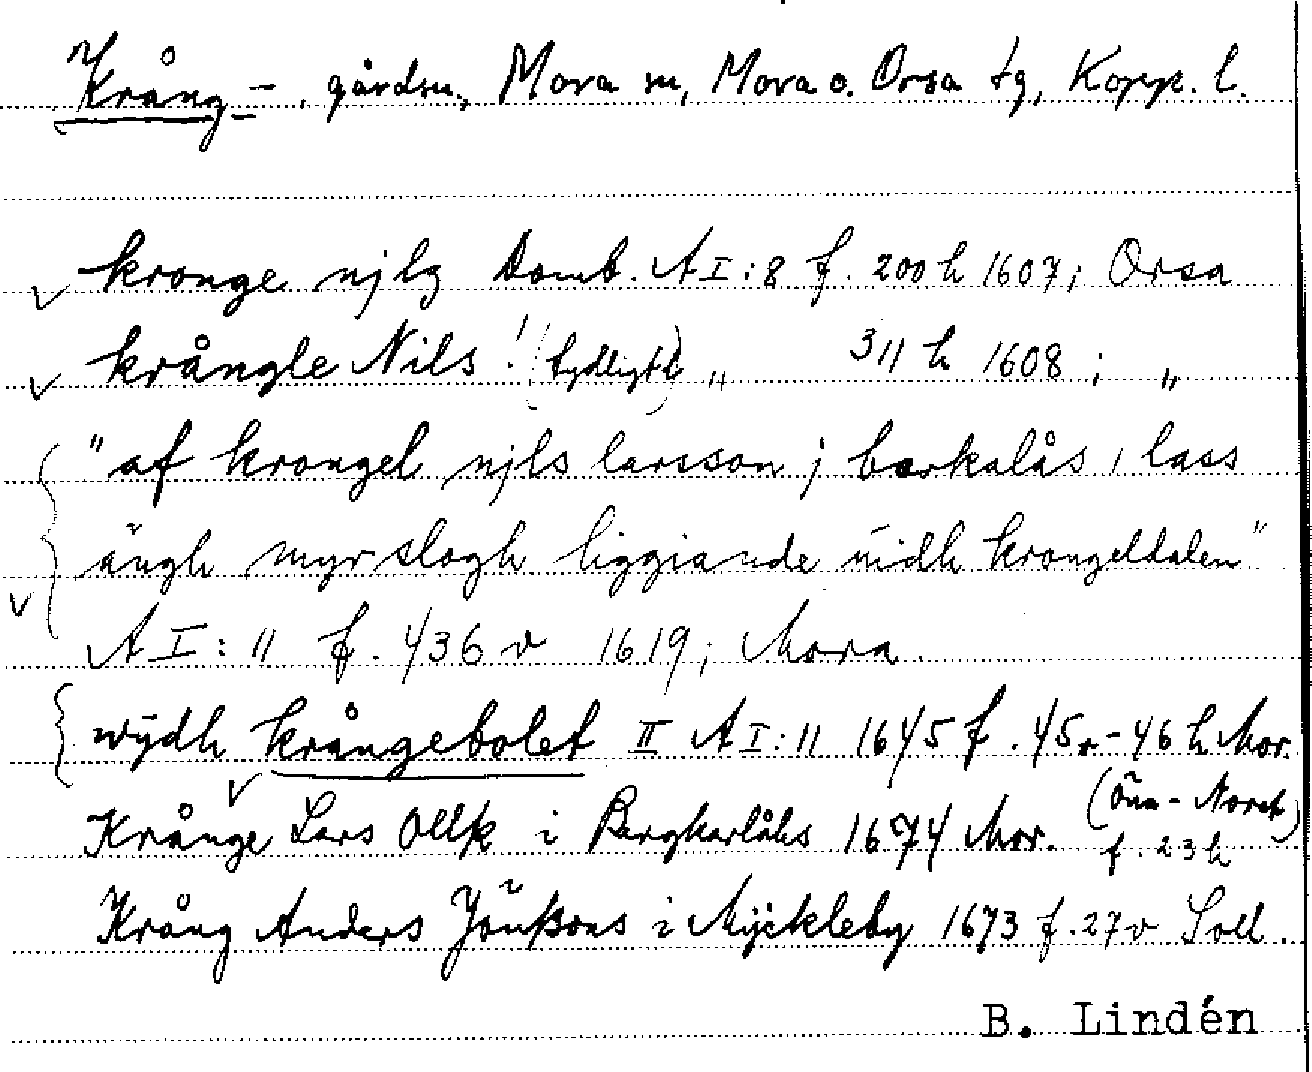 Krång-, gårdsn., Mora sn, Mora o. Orsa tg, Kopp. l.
kronge njlz Domb. A I:8 f. 200 h 1607; Orsa
krångle Nils! (tydligt) " 311 h 1608; "
"af krongel njls larsson j barkalås, lass
ängh myr slogh liggiande uidh krongeldalen"
A I:11 f. 436 v 1619; Mora
wydh krångebolet II A I:11 1645 f. 45v-46 h Mor.
Krånge Lars Ollß i Bergkarlåhs 1674 Mor. (Öna-Noret)
f. 23 h
Krång Anders Jönßons i Myckleby 1673 f. 27v Soll.
B. Lindén